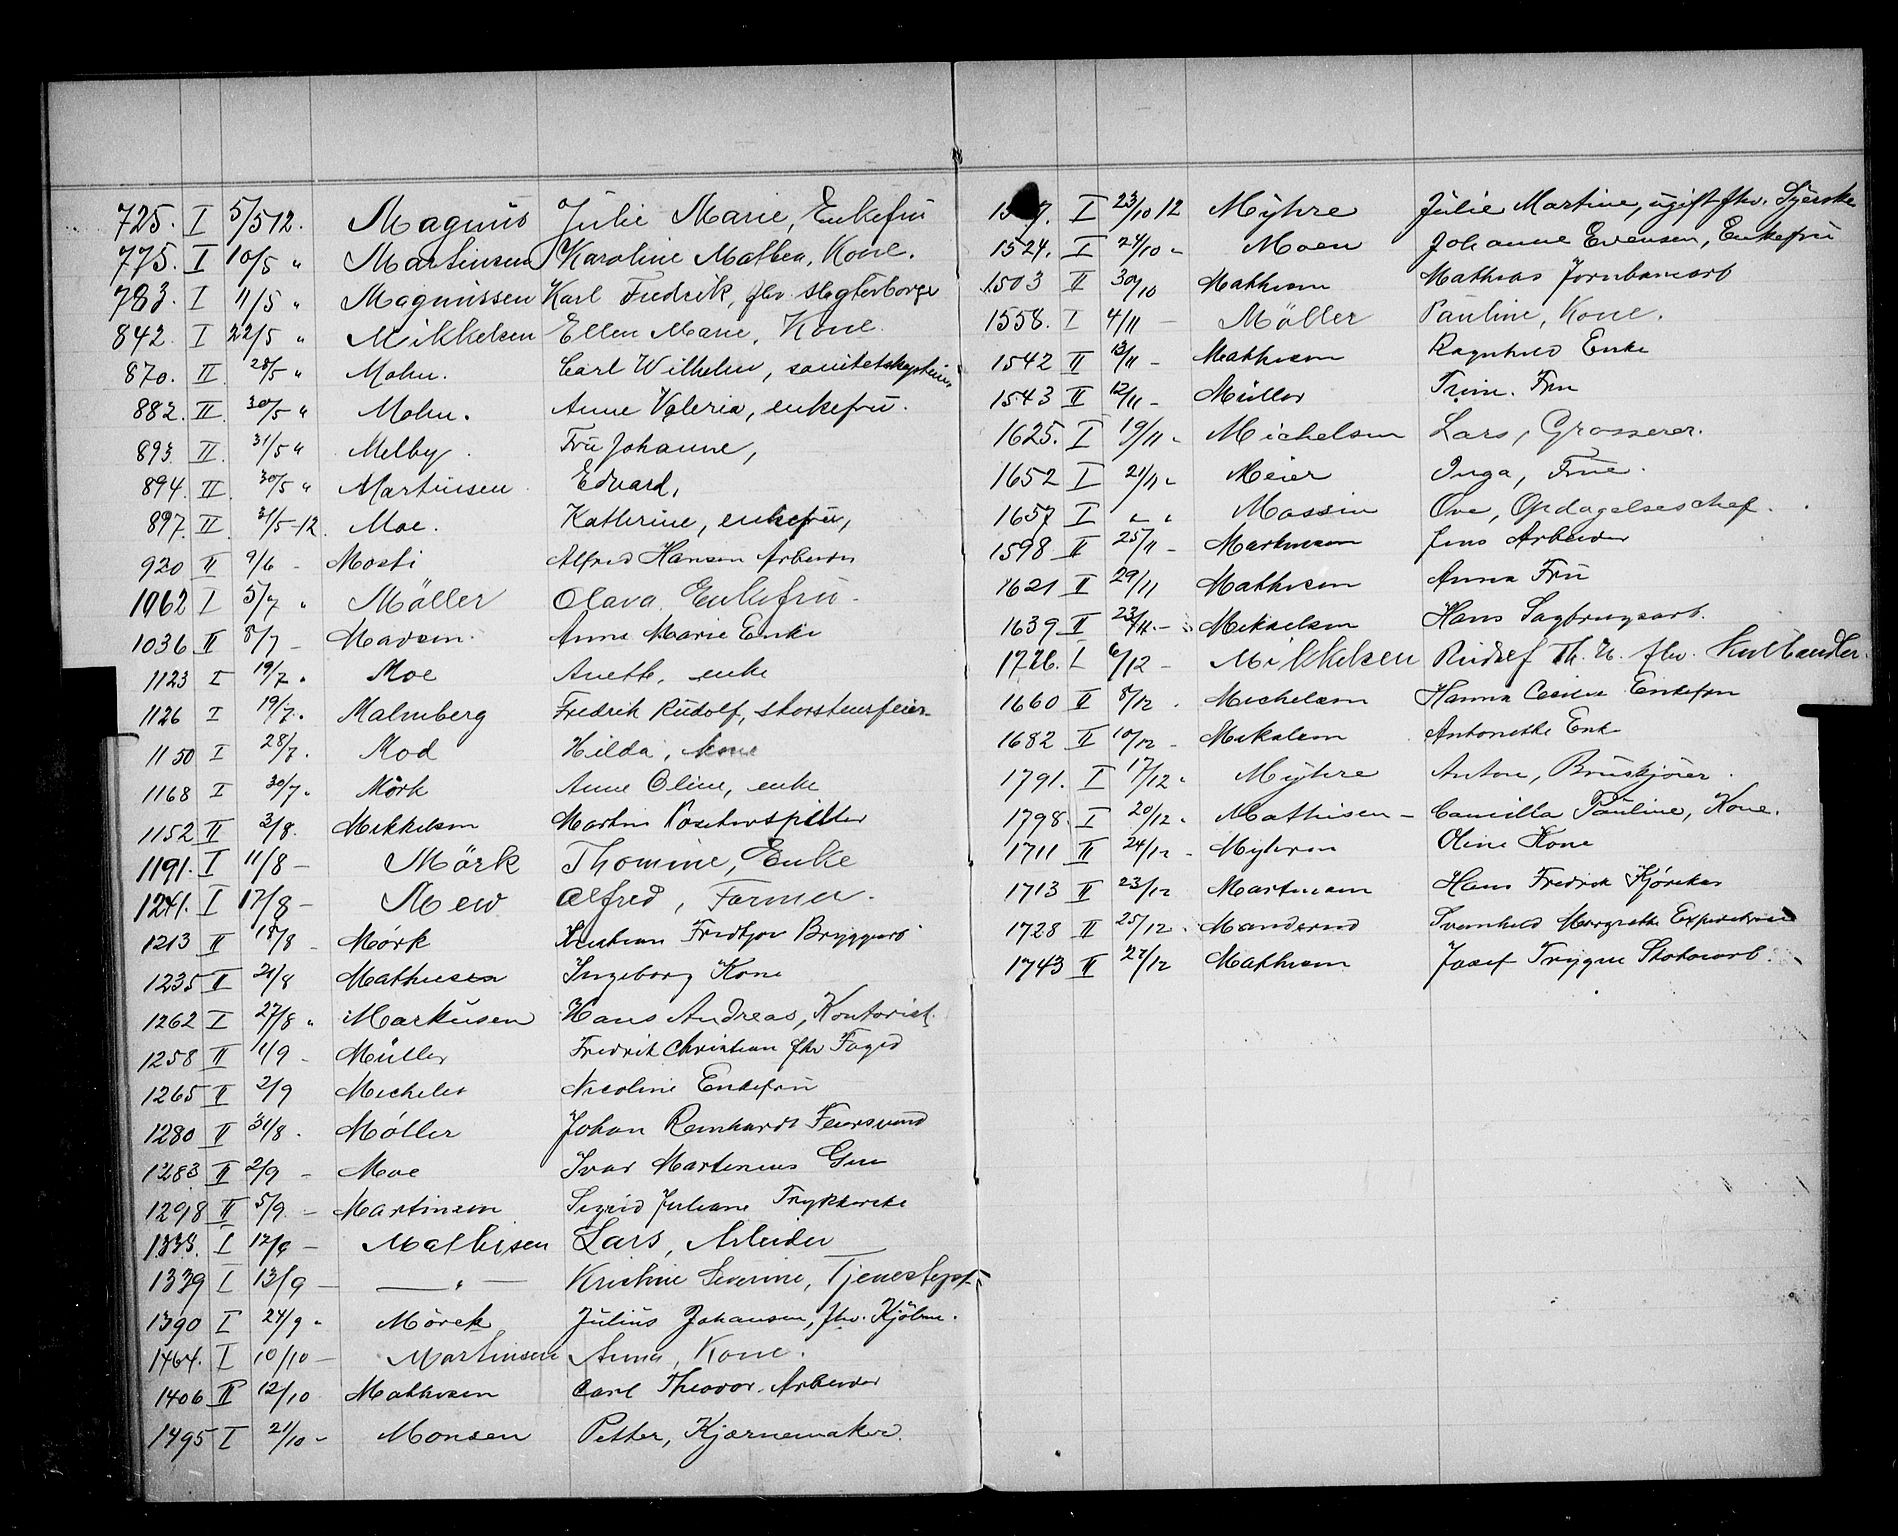 725. I 5/5 12. Magnus Julie Marie, Enkefru
775. I 10/5 " Martinsen Karoline Mathea, Kone.
783. I 11/5 " Magnussen Karl Fredrik, fhv.
842. I 22/5 " Mikkelsen Ellen Marie, Kone.
870. II. 28/5 " Mohn. Carl Wilhelm,
882. II. 30/5 " Mohn. Anne Valeria, enkefru.
893. II. 31/5 " Melby. Fru Johanne,
894. II. 30/5 " Martinsen Edvard,
897. II. 31/5-12. Moe. Kathrine, enkefru,
920 II 9/6 - Mosti Alfred Hansen Arbeider
1062 I 5/7 " Möller Olava Enkefru.
1036 II 8/7 - Madsen. Anne Marie Enke
1123 I 19/7 " Moe Anette, enke
1126 I 19/7. Malmberg Fredrik Rudolf, skorstensfeier
1150 I 28/7. Mod Hilda, kone
1168 I 30/7 " Mörk Anne Oline, enke
1152 II 3/8. Mikkelsen Martin
1191. I 11/8 - Mörk Thomine, Enke
1241. I 17/8 - Mew Alfred, Farmer.
1213 II 18/8 - Mörk Kristian Fredtjov
1235 II 21/8 Mathiesen Ingeborg Kone
1262 I 27/8 " Markusen Hans Andreas, Kontorist.
1258 II 1/9 - Müller Fredrik Christian fhv Foged
1265 II 2/9 Michelet Nicoline Enkefru
1280 II 31/8. Möller Johan Reinhardt
1283 II 2/9 - Moe Ivar Martinius
1298 II 5/9. - Martinsen Sigrid Juliane Trykkerske
1333. I 12/9 - Mathisen Lars, Arbeider
1339 I 13/9 - — " — Kristine Severine,
1390 I 24/9 " Mörck Julius Johansen, fhv.
1464. I 10/10 - Martinsen Anna, Kone.
1406 II 12/10 Mathisen Carl Theodor. Arbeider
1495 I 21/10 - Monsen Petter, Kjærnemaker.
I 23/10 12 Myhre Julie Martine, ugift fhv. Syerske
1524. I 24/10 " Moen Johanne Evensen, Enkefru
1503 II 30/10 Mathisen Mathias Jernbanearb
1558. I 4/11 - Möller Pauline, Kone.
1542 II 13/11 - Mathisen Ragnhild Enke
1543 II 12/11 - Müller Trine. Fru
1625. I 19/11 " Michelsen Lars, Grosserer.
1652 I 21/11 " Meier Inga, Frue.
1657 I " " Massin Ove, Opdagelseschef.
1598 II 25/11 - Martinsen Jens Arbeider
1621 II 29/11 Mathisen Anna Fru
1639 II 23/11 - Mikaelsen Hans Sagbrugsarb.
1726. I 6/12 - Mikkelsen Rudolf Th. fhv. Kulhandler.
1660 II 8/12. Michelsen Hanna Cecilie Enkefru
1682 II 10/12 - Mikalsen Antonette Enke
1791. I 17/12 " Myhre Anton, Bruskjører.
1798. I 20/12 " Mathisen - Camilla Pauline, Kone.
1711 II 24/12 - Myhren Oline Kone
1713 II 23/12 Martinsen Hans Fredrik
1728 II 25/12. Svanhild Margrethe
1743 II 27/12 Mathisen Josef Trygve